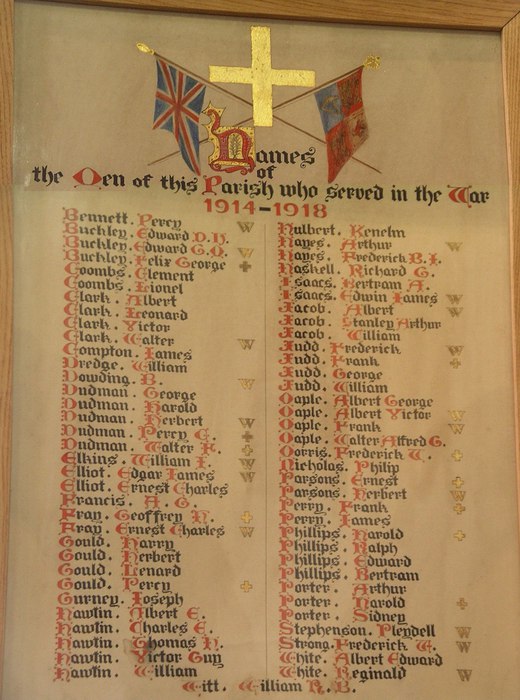 Names
of
the Men of this Parish who served in the War
1914-1918
Bennett. Percy W
Buckley. Edward D.H.
Buckley. Edward G.Q. W
Buckley. Felix George +
Coombs. Clement
Coombs. Lionel
Clark. Albert
Clark. Leonard
Clark. Victor
Clark. Walter W
Compton. James
Dredge. William
Dowding. B. W
Dudman. George
Dudman. Harold
Dudman. Herbert W
Dudman. Percy G. +
Dudman. Walter F. +
Elkins. William J. W
Elliot. Edgar James W
Elliot. Ernest Charles
Francis. A. G.
Fray. Geoffrey N. +
Fray. Ernest Charles W
Gould. Harry
Gould. Herbert
Gould. Lenard
Gould. Percy +
Gurney. Joseph
Hawtin. Albert E.
Hawtin. Charles E.
Hawtin. Thomas H.
Hawtin. Victor Guy
Hawtin. William
Hulbert. Kenelm
Hayes. Arthur W
Hayes. Frederick B.J.
Haskell. Richard G.
Isaacs. Bertram A.
Isaacs. Edwin James W
Jacob. Albert W
Jacob. Stanley Arthur
Jacob. William
Judd. Frederick W
Judd. Frank +
Judd. George
Judd. William
Maple. Albert George
Maple. Albert Victor W
Maple. Frank W
Maple. Walter Alfred G.
Morris. Frederick W. +
Nicholas. Philip
Parsons. Ernest +
Parsons. Herbert W
Perry. Frank +
Perry. James
Phillips. Harold +
Phillips. Ralph
Phillips. Edward
Phillips. Bertram
Porter. Arthur
Porter. Harold +
Porter. Sidney
Stephenson. Pleydell W
Strong. Frederick W. W
White. Albert Edward
White. Reginald W
Witt. William R.B.